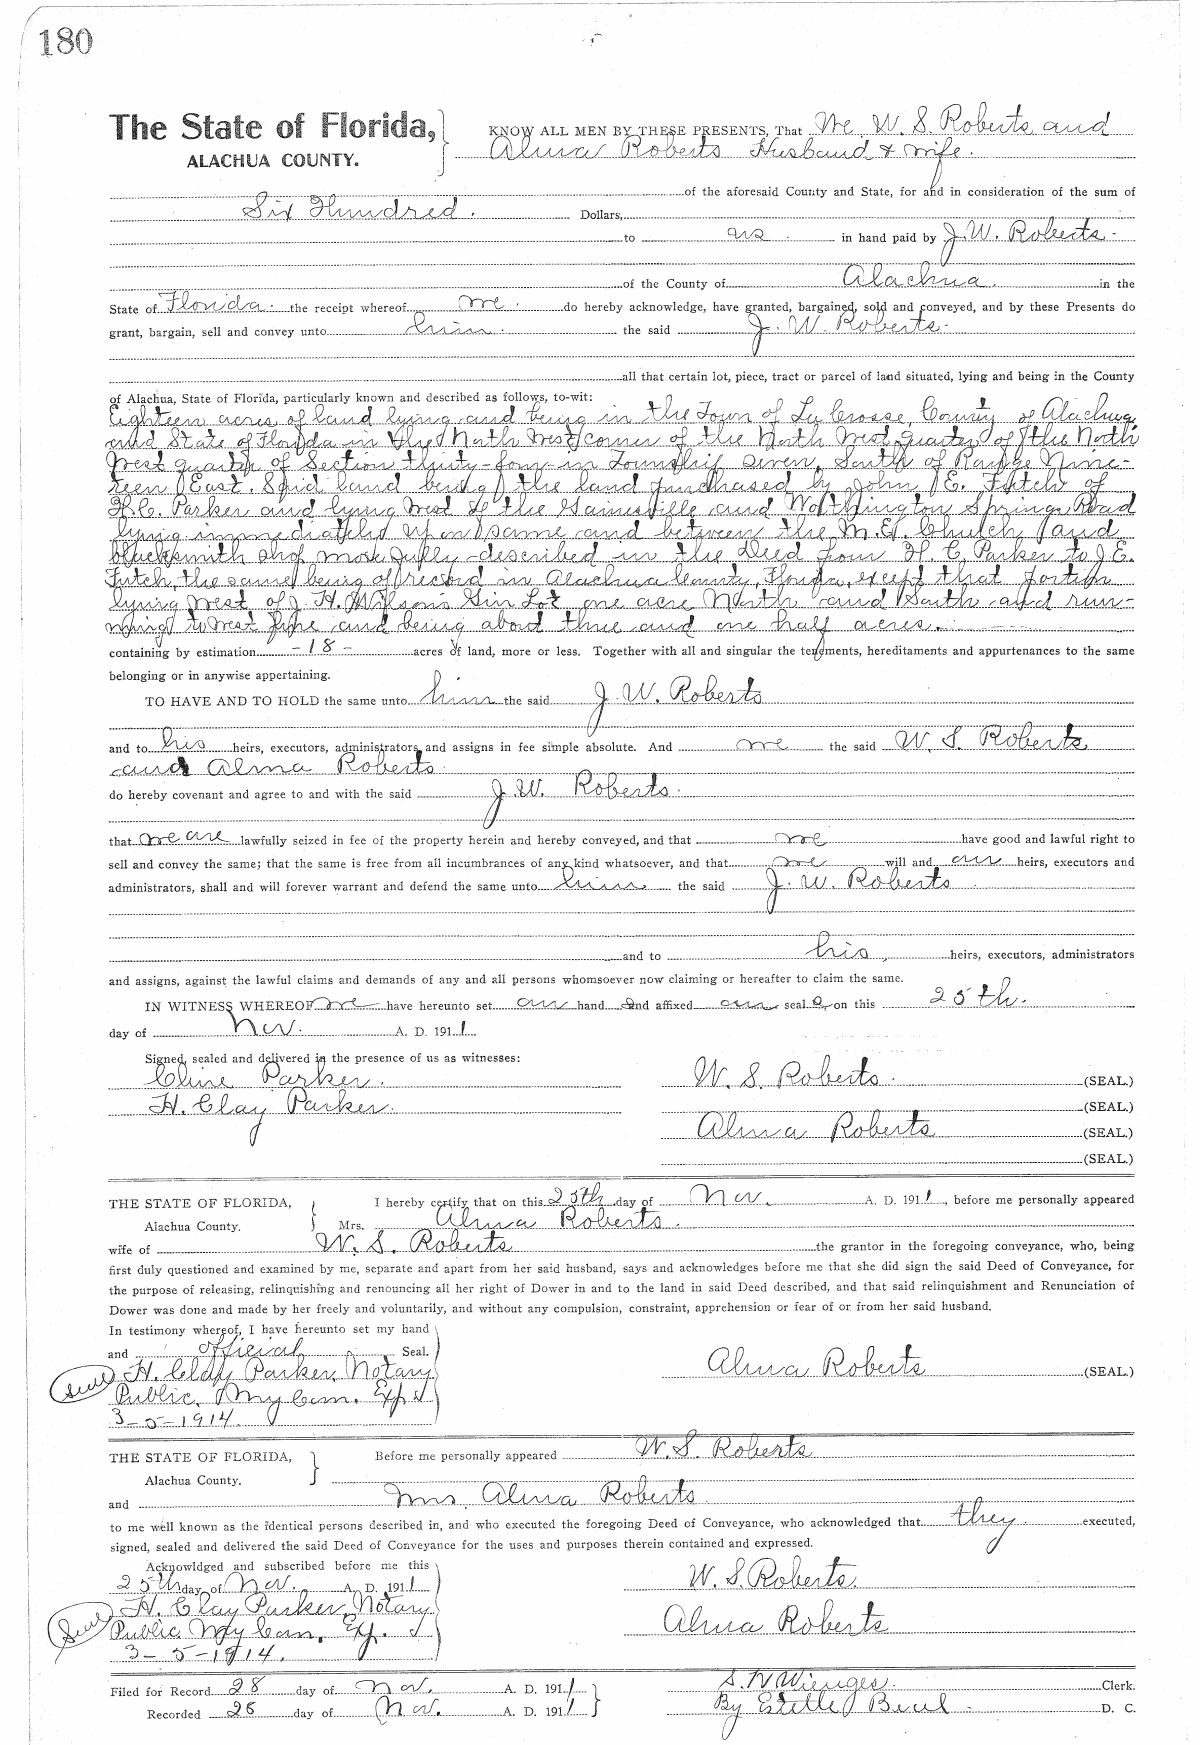 180
The State of Florida, KNOW ALL MEN BY THESE PRESENTS, That We W. S. Roberts and
ALACHUA COUNTY. Alma Roberts Husband & wife.
of the aforesaid County and State, for and in consideration of the sum of
Six Hundred. Dollars,
to us in hand paid by J. W. Roberts
of the County of Alachua. in the
State of Florida. the receipt whereof we do hereby acknowledge, have granted, bargained, sold and conveyed, and by these Presents do
grant, bargain, sell and convey unto him the said J. W. Roberts.
all that certain lot, piece, tract or parcel of land situated, lying and being in the County
of Alachua, State of Florida, particularly known and described as follows, to-wit:
Eighteen acres of land lying and being in the Town of La Crosse, County of Alachua,
and State of Florida in the North West corner of the North West quarter of the North
West quarter of Section thirty-four in Township seven, South of Range Nine-
teen East. Said land being the land purchased by John E. Futch of
H. C. Parker and lying West of the Gainesville and Worthington Springs Road
lying immediatlely upon same and between the M. E. Chuch and
blacksmith shop more fully described in the Deed from H. C. Parker to J. E.
Futch, the same being of record in Alachua County, Florida, except that portion
lying West of J. H. Wilson's Gin Lot, one acre North and South and run-
ning to West line and being about three and one half acres.
containing by estimation -18- acres of land, more or less. Together with all and singular the tenements, hereditaments and appurtenances to the same
belonging or in anywise appertaining.
TO HAVE AND TO HOLD the same unto him the said J. W. Roberts
and to his heirs, executors, administrators and assigns in fee simple absolute. And we the said W. S. Roberts
and Alma Roberts
do hereby covenant and agree to and with the said J. W. Roberts.
that we are lawfully seized in fee of the property herein and hereby conveyed, and that we have good and lawful right to
sell and convey the same; that the same is free from all incumbrances of any kind whatsoever, and that we will and our heirs, executors and
administrators, shall and will forever warrant and defend the same unto him the said J. W. Roberts
and to his heirs, executors, administrators
and assigns, against the lawful claims and demands of any and all persons whomsoever now claiming or hereafter to claim the same.
IN WITNESS WHEREOF we have hereunto set our hand and affixed our seal s on this 25th.
day of Nov. A. D. 1911
Signed, sealed and delivered in the presence of us as witnesses:
Cline Parker. W. S. Roberts. (SEAL.)
H. Clay Parker. (SEAL.)
Alma Roberts (SEAL.)
(SEAL.)
THE STATE OF FLORIDA, I hereby certify that on this 25th day of Nov. A. D. 1911, before me personally appeared
Alachua County. Mrs. Alma Roberts.
wife of W. S. Roberts the grantor in the foregoing conveyance, who, being
first duly questioned and examined by me, separate and apart from her said husband, says and acknowledges before me that she did sign the said Deed of Conveyance, for
the purpose of releasing, relinquishing and renouncing all her right of Dower in and to the land in said Deed described, and that said relinquishment and Renunciation of
Dower was done and made by her freely and voluntarily, and without any compulsion, constraint, apprehension or fear of or from her said husband.
In testimony whereof, I have hereunto set my hand
and official Seal.
Seal H. Clay Parker, Notary Alma Roberts (SEAL.)
Public. My Com. Exps
3-5-1914.
THE STATE OF FLORIDA, Before me personally appeared W. S. Roberts
Alachua County.
and Mrs. Alma Roberts
to me well known as the identical persons described in, and who executed the foregoing Deed of Conveyance, who acknowledged that they executed,
signed, sealed and delivered the said Deed of Conveyance for the uses and purposes therein contained and expressed.
Acknowldged and subscribed before me this
25th day of Nov. A. D. 1911 W. S. Roberts.
Seal H. Clay Parker, Notary
Public My Com. Exp. s Alma Roberts
3-5-1914.
Filed for Record 28 day of Nov. A. D. 1911 S. H Wienges. Clerk.
Recorded 28 day of Nov. A. D. 1911 By Estelle Beul D. C.